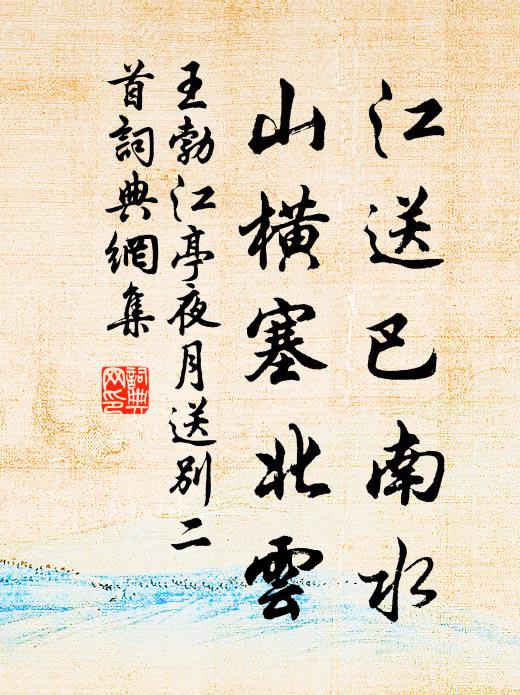 江送巴南水
山橫塞北雲
王勃江亭夜月送別二
首詞典網集
詞典
网印